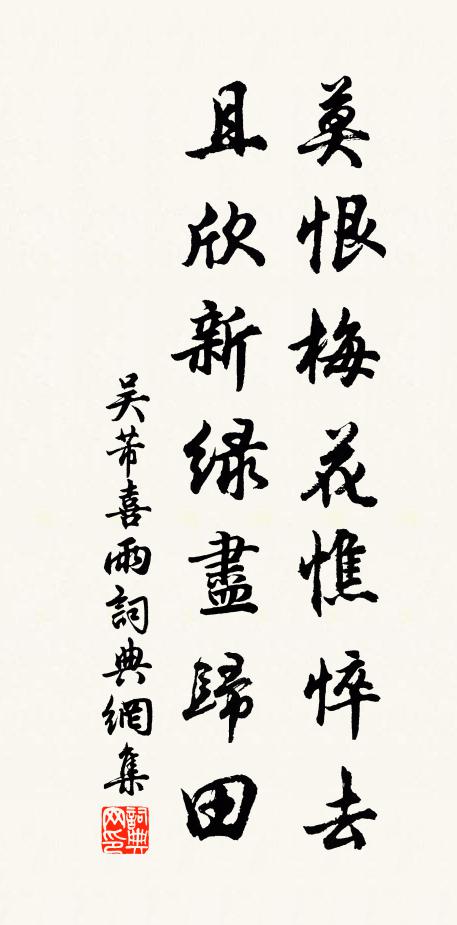 莫恨梅花憔悴去
且欣新緑盡歸田
吴芾喜雨詞典網集
詞典网印